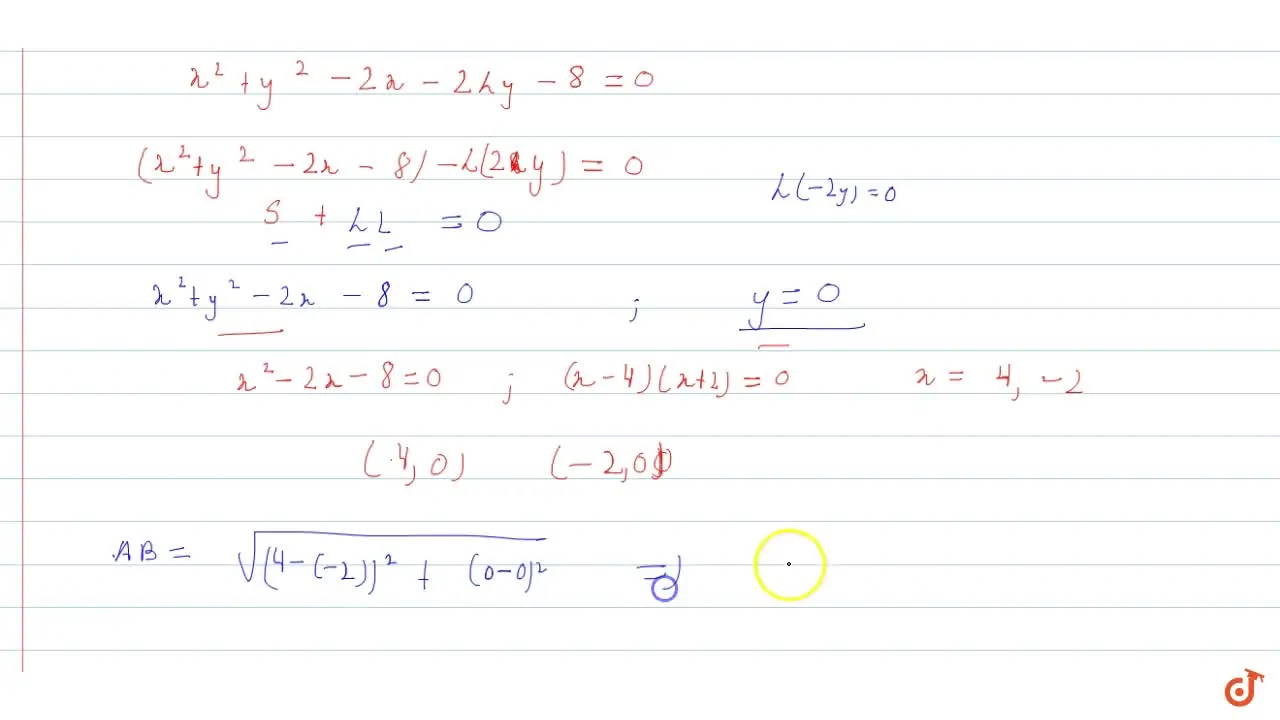 x² + y² - 2x - 2λy - 8 = 0
(x² + y² - 2x - 8) - λ(2y) = 0
λ(-2y) = 0
S + λL = 0
x² + y² - 2x - 8 = 0 ; y = 0
x² - 2x - 8 = 0 ; (x-4)(x+2) = 0 x = 4, -2
(4, 0) (-2, 0)
AB = √(4-(-2))² + (0-0)²